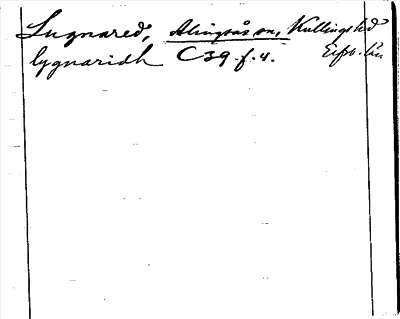 Lugnared, Alingsås sn, Kullings hd
lygnaridh C 39 f. 4. Elfsb. län